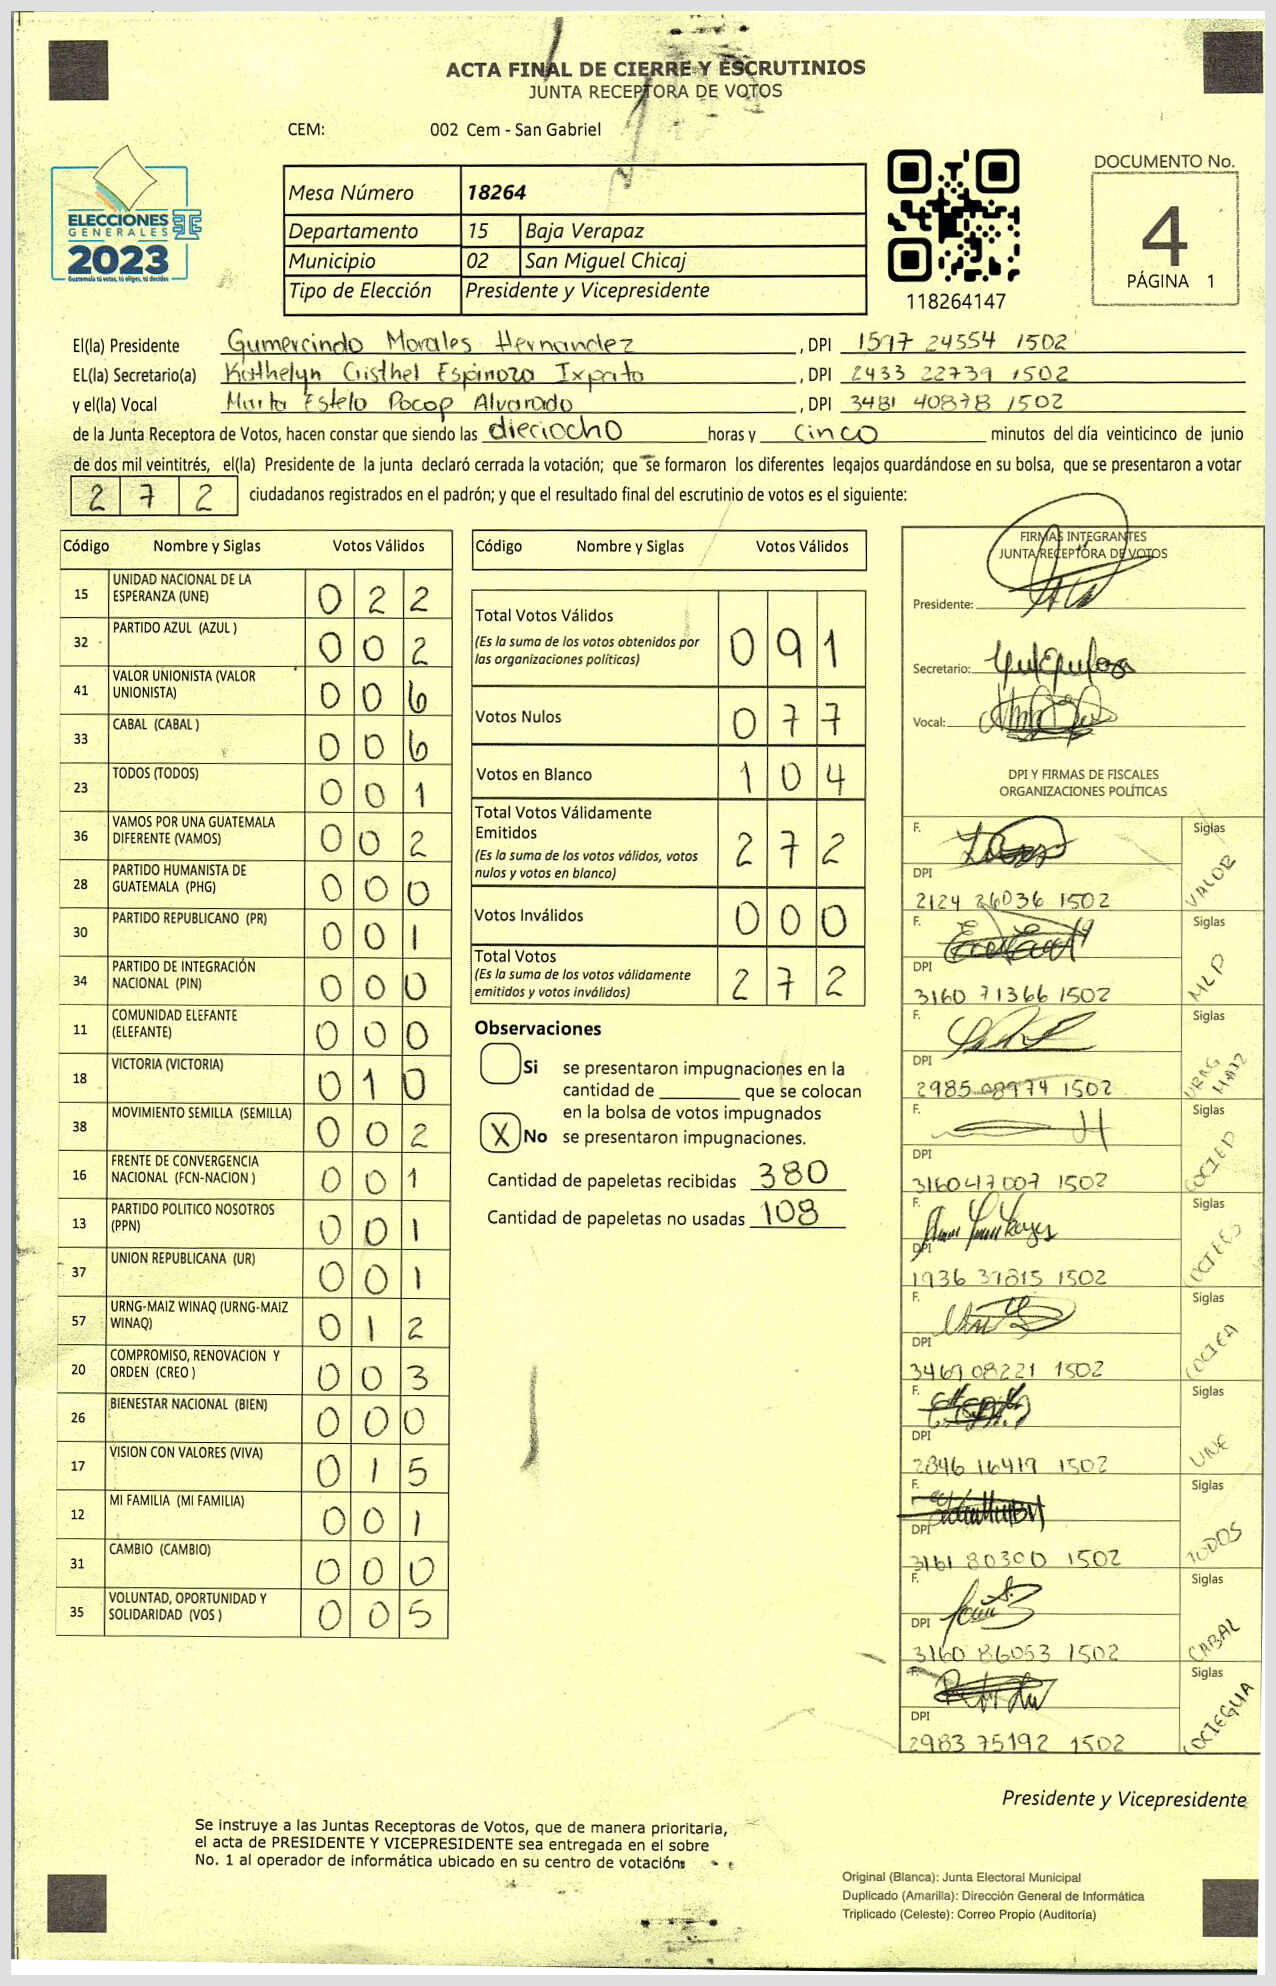 ACTA FINAL DE CIERRE Y ESCRUTINIOS
JUNTA RECEPTORA DE VOTOS
CEM: 002 Cem - San Gabriel
ELECCIONES
GENERALES
2023
Guatemala tú votas, tú eliges, tú decides
Mesa Número 18264
Departamento 15 Baja Verapaz
Municipio 02 San Miguel Chicaj
Tipo de Elección Presidente y Vicepresidente
118264147
DOCUMENTO No.
4
PÁGINA 1
El(la) Presidente Gumercindo Morales Hernandez, DPI 1597 24554 1502
EL(la) Secretario(a) Kathelyn Cristhel Espinoza Ixpata, DPI 2433 22739 1502
y el(la) Vocal Marta Estela Pocop Alvarado, DPI 3481 40878 1502
de la Junta Receptora de Votos, hacen constar que siendo las dieciocho horas y cinco minutos del día veinticinco de junio
de dos mil veintitrés, el(la) Presidente de la junta declaró cerrada la votación; que se formaron los diferentes legajos guardándose en su bolsa, que se presentaron a votar
272 ciudadanos registrados en el padrón; y que el resultado final del escrutinio de votos es el siguiente:
Código Nombre y Siglas Votos Válidos
15 UNIDAD NACIONAL DE LA ESPERANZA (UNE) 022
32 PARTIDO AZUL (AZUL ) 002
41 VALOR UNIONISTA (VALOR UNIONISTA) 006
33 CABAL (CABAL ) 006
23 TODOS (TODOS) 001
36 VAMOS POR UNA GUATEMALA DIFERENTE (VAMOS) 002
28 PARTIDO HUMANISTA DE GUATEMALA (PHG) 000
30 PARTIDO REPUBLICANO (PR) 001
34 PARTIDO DE INTEGRACIÓN NACIONAL (PIN) 000
11 COMUNIDAD ELEFANTE (ELEFANTE) 000
18 VICTORIA (VICTORIA) 010
38 MOVIMIENTO SEMILLA (SEMILLA) 002
16 FRENTE DE CONVERGENCIA NACIONAL (FCN-NACION ) 001
13 PARTIDO POLITICO NOSOTROS (PPN) 001
37 UNION REPUBLICANA (UR) 001
57 URNG-MAIZ WINAQ (URNG-MAIZ WINAQ) 012
20 COMPROMISO, RENOVACION Y ORDEN (CREO ) 003
26 BIENESTAR NACIONAL (BIEN) 000
17 VISION CON VALORES (VIVA) 015
12 MI FAMILIA (MI FAMILIA) 001
31 CAMBIO (CAMBIO) 000
35 VOLUNTAD, OPORTUNIDAD Y SOLIDARIDAD (VOS ) 005
Código Nombre y Siglas Votos Válidos
Total Votos Válidos 091
(Es la suma de los votos obtenidos por las organizaciones políticas)
Votos Nulos 077
Votos en Blanco 104
Total Votos Válidamente Emitidos 272
(Es la suma de los votos válidos, votos nulos y votos en blanco)
Votos Inválidos 000
Total Votos 272
(Es la suma de los votos válidamente emitidos y votos inválidos)
Observaciones
Si se presentaron impugnaciones en la
cantidad de ________ que se colocan
en la bolsa de votos impugnados
X No se presentaron impugnaciones.
Cantidad de papeletas recibidas 380
Cantidad de papeletas no usadas 108
FIRMAS INTEGRANTES
JUNTA RECEPTORA DE VOTOS
Presidente:
Secretario:
Vocal:
DPI Y FIRMAS DE FISCALES
ORGANIZACIONES POLÍTICAS
F. Siglas VALOR
DPI
2124 26036 1502
F. Siglas MLP
DPI
3160 71366 1502
F. Siglas URNG MAIZ
DPI
2985 08974 1502
F. Siglas
DPI
3160417007 1502
F. Siglas
DPI
1936 39815 1502
F. Siglas
DPI
3469 08221 1502
F. Siglas UNE
DPI
2846 16419 1502
F. Siglas TODOS
DPI
3161 80300 1502
F. Siglas CABAL
DPI
3160 86053 1502
F. Siglas COCIEGUA
DPI
2983 75192 1502
Presidente y Vicepresidente
Se instruye a las Juntas Receptoras de Votos, que de manera prioritaria,
el acta de PRESIDENTE Y VICEPRESIDENTE sea entregada en el sobre
No. 1 al operador de informática ubicado en su centro de votación.
Original (Blanca): Junta Electoral Municipal
Duplicado (Amarilla): Dirección General de Informática
Triplicado (Celeste): Correo Propio (Auditoría)